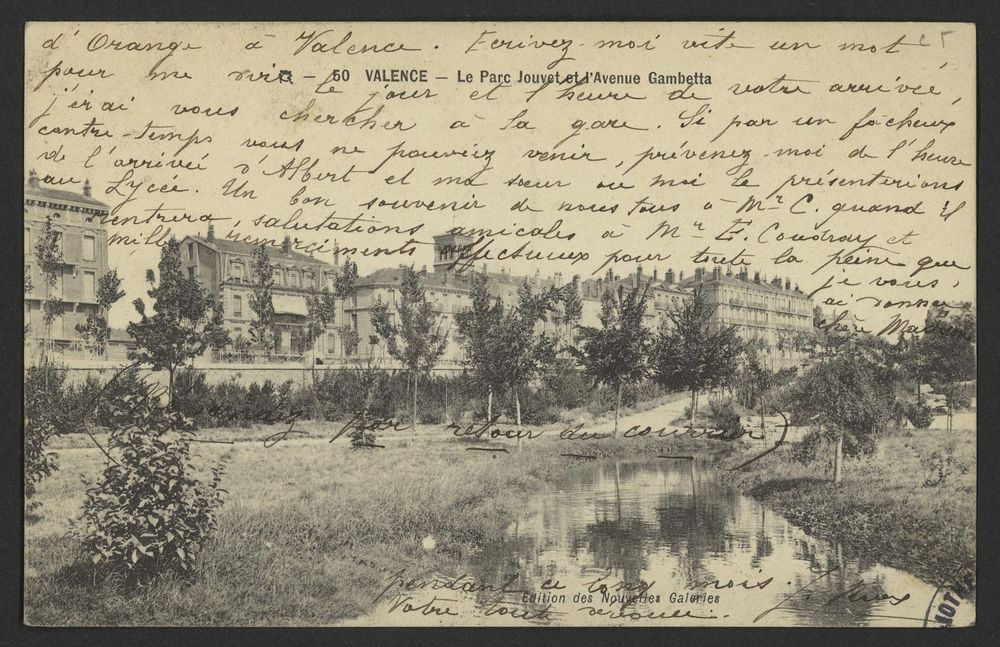 d'Orange à Valence. Ecrivez-moi vite un mot
pour me dire le jour et l'heure de votre arrivée,
50 VALENCE — Le Parc Jouvet et l'Avenue Gambetta
j'irai vous chercher à la gare. Si par un fâcheux
contre-temps vous ne pouviez venir, prévenez-moi de l'heure
de l'arrivée d'Albert et ma sœur ou moi le présenterions
au Lycée. Un bon souvenir de nous tous à Mr C. quand il
rentrera, salutations amicales à Mr E. Coudray et
mille remerciements affectueux pour toute la peine que
je vous
ai donnée
chère
par retour du courrier)
pendant ce long mois.
Edition des Nouvelles Galeries
Votre toute